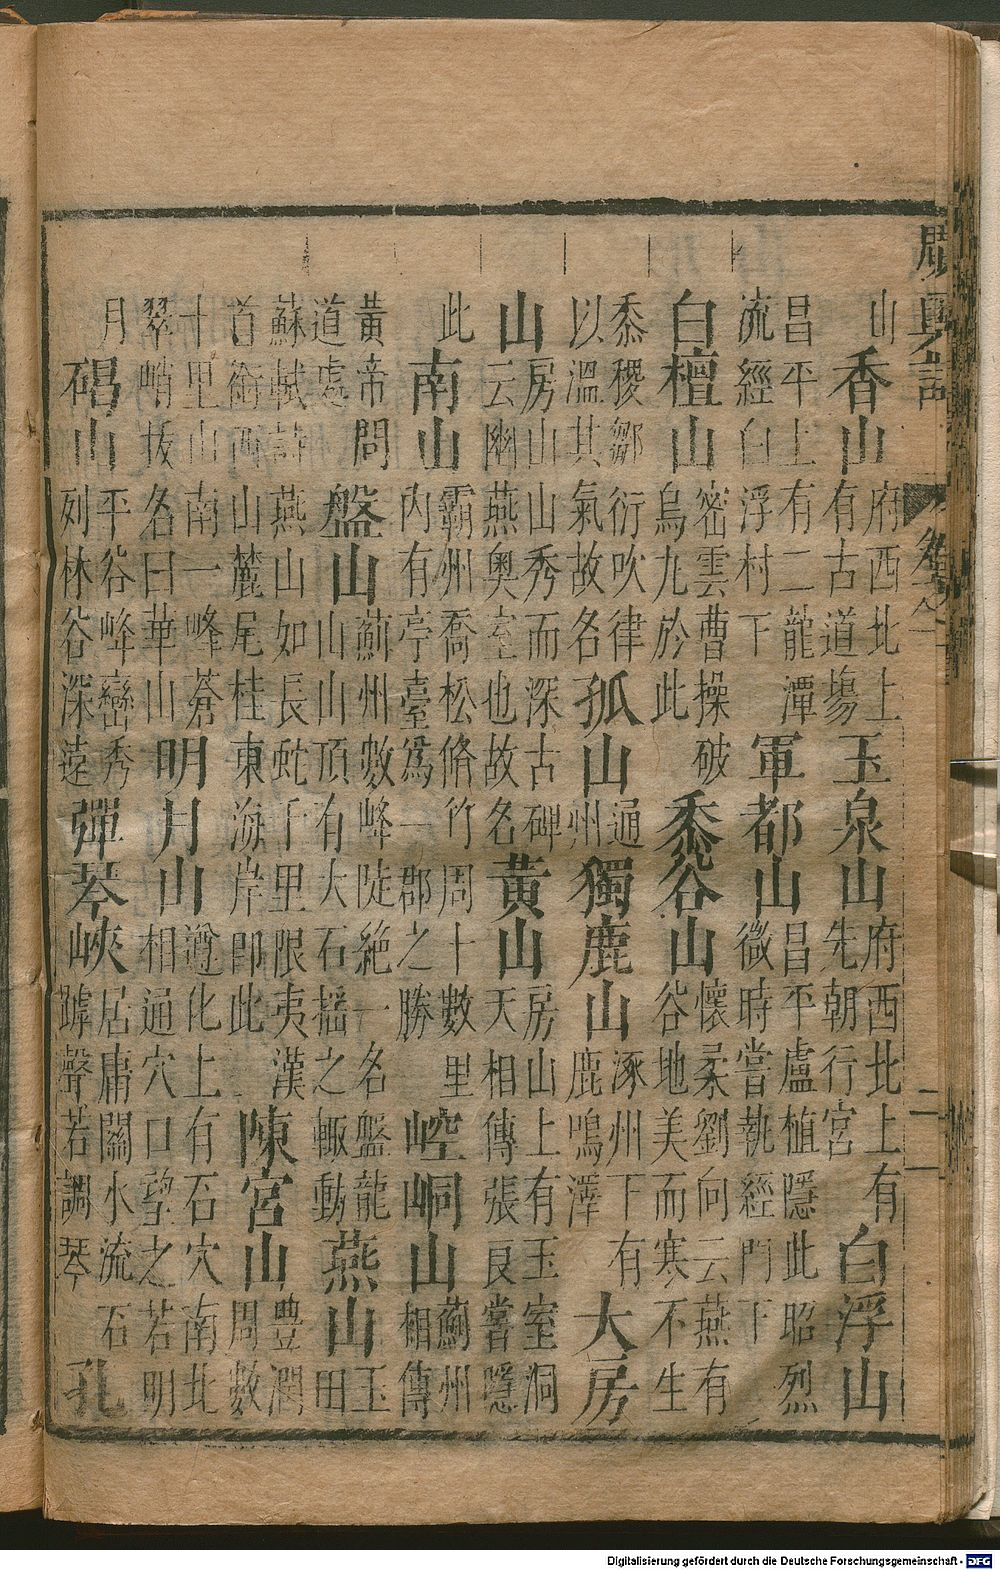 廣輿記 卷之一 二
山 香山 府西北上有古道場 玉泉山 府西北上有先朝行宮 白浮山
昌平上有二龍潭流經白浮村下 軍都山 昌平盧植隱此昭烈微時嘗執經門下
白檀山 密雲曹操破烏九於此 黍谷山 懷柔劉向云燕有谷地美而寒不生
黍稷鄒衍吹律以溫其氣故名 孤山 通州 獨鹿山 涿州下有鹿鳴澤 大房
山 房山山秀而深古碑云幽燕奧室也故名 黃山 房山上有玉室洞天相傳張良嘗隱
此 南山 霸州喬松脩竹周十數里内有亭臺爲一郡之勝 崆峒山 薊州相傳
黃帝問道處 盤山 薊州數峰陡絶一名盤龍山山頂有大石搖之輒動 燕山 玉田
蘇軾詩燕山如長蛇千里限夷漢首銜西山麓尾桂東海岸即此 陳宮山 豊潤周數
十里山南一峰蒼翠峭拔名曰華山 明月山 遵化上有石穴南北相通穴口望之若明
月 碣山 平谷峰巒秀列林谷深遠 彈琴峽 居庸關水流石罅聲若調琴 孔
Digitalisierung gefördert durch die Deutsche Forschungsgemeinschaft - DFG